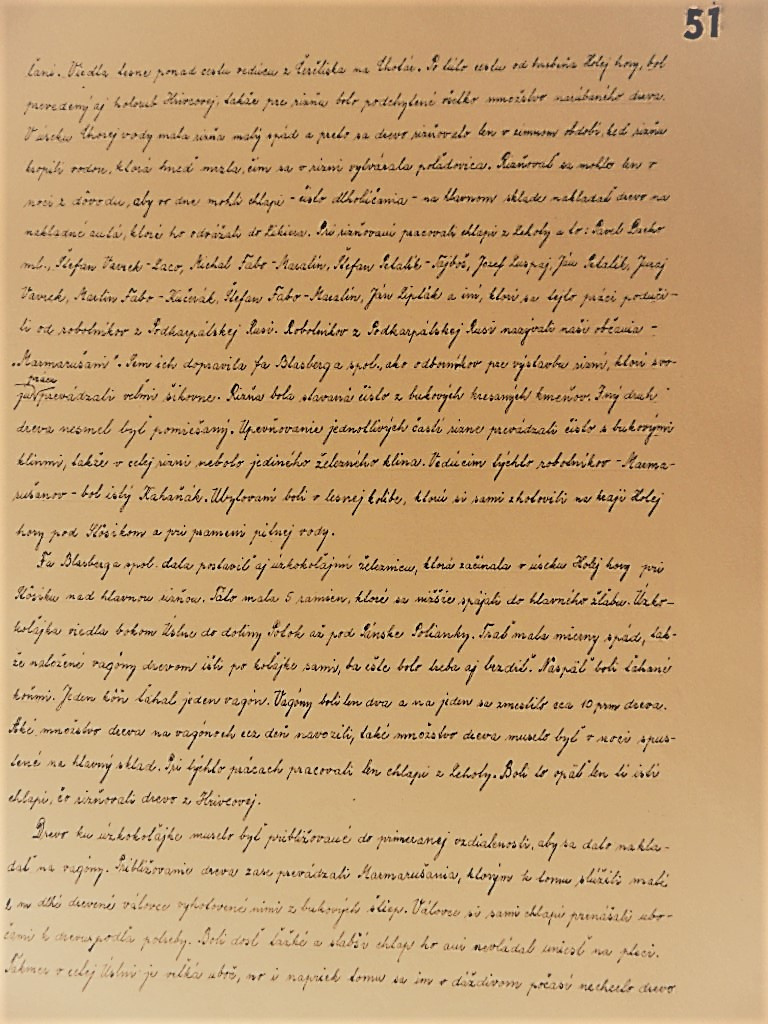 51
ťami. Viedla tesne ponad cestu vedúcu z Čertiska na Chotár. Po túto cestu od hrebeňa Holej hory, bol
prevedený aj holorub Hrivcovej, takže pre rizňu bolo podchytené všetko množstvo narúbaného dreva.
V úseku Chorej vody mala rizňa malý spád a preto sa drevo rizňovalo len v zimnom období, keď rizňu
kropili vodou, ktorá hneď mrzla, čím sa v rizni vytvárala poľadovica. Rizňovať sa mohlo len v
noci z dôvodu, aby vo dne mohli chlapi - čisto dlholúčania - na hlavnom sklade nakladať drevo na
nákladné autá, ktoré ho odvážali do Likiera. Pri rizňovaní pracovali chlapi z Lehoty a to: Pavel
ml., Štefan Vavrek-Laco, Michal Fabo-Maralin, Štefan Petalík-Tajboš, Jozef Luspaj, Ján Petalík, Juraj
Vavrek, Martin Fabo-Kučerák, Štefan Fabo-Maralin, Ján Lipták a iní, ktorí sa tejto práci poduči-
li od robotníkov z Podkarpatskej Rusi. Robotníkov z Podkarpatskej Rusi nazývali naši občania -
„Marmarušani". Sem ich dopravila fa Blasberg a spol., ako odborníkov pre výstavbu rizní, ktorí svo-
ju prácu prevádzali veľmi šikovne. Rizňa bola stavaná čisto z bukových kresaných kmeňov. Iný druh
dreva nesmel byť pomiešaný. Upevňovanie jednotlivých častí rizne prevádzali čisto s bukovými
klinmi, takže v celej rizni nebolo jediného železného klina. Vedúcim týchto robotníkov - Marma-
rušanov - bol istý Kahaňák. Ubytovaní boli v lesnej kolibe, ktorú si sami zhotovili na kraji Holej
hory pod Klôsikom a pri prameni pitnej vody.
Fa Blasberg a spol. dala postaviť aj úzkokoľajnú železnicu, ktorá začínala v úseku Holej hory pri
Klôsiku nad hlavnou rizňou. Táto mala 5 ramien, ktoré sa nižšie spájali do hlavného žľabu. Úzko-
koľajka viedla bokom Úslne do doliny Potok až pod Pánske Polianky. Trať mala mierny spád, tak-
že naložené vagóny drevom išli po koľajke sami, ba ešte bolo treba aj brzdiť. Naspäť boli ťahané
koňmi. Jeden kôň ťahal jeden vagón. Vagóny boli len dva a na jeden sa zmestilo cca 10 prm dreva.
Aké množstvo dreva na vagónoch cez deň navozili, také množstvo dreva muselo byť v noci spus-
tené na hlavný sklad. Pri týchto prácach pracovali len chlapi z Lehoty. Boli to opäť len tí istí
chlapi, čo rizňovali drevo z Hrivcovej.
Drevo ku úzkokoľajke muselo byť približované do primeranej vzdialenosti, aby sa dalo nakla-
dať na vagóny. Približovanie dreva zase prevádzali Marmarušania, ktorým k tomu slúžili malé
m dlhé drevené válovce vyhotovené nimi z bukových štiep. Válovce si sami chlapi prenášali ubo-
čami k drevu podľa potreby. Boli dosť ťažké a slabší chlap ho ani nevládal uniesť na pleci.
Takmer v celej Úslni je veľká uboč, no i napriek tomu sa im v daždivom počasí nechcelo drevo